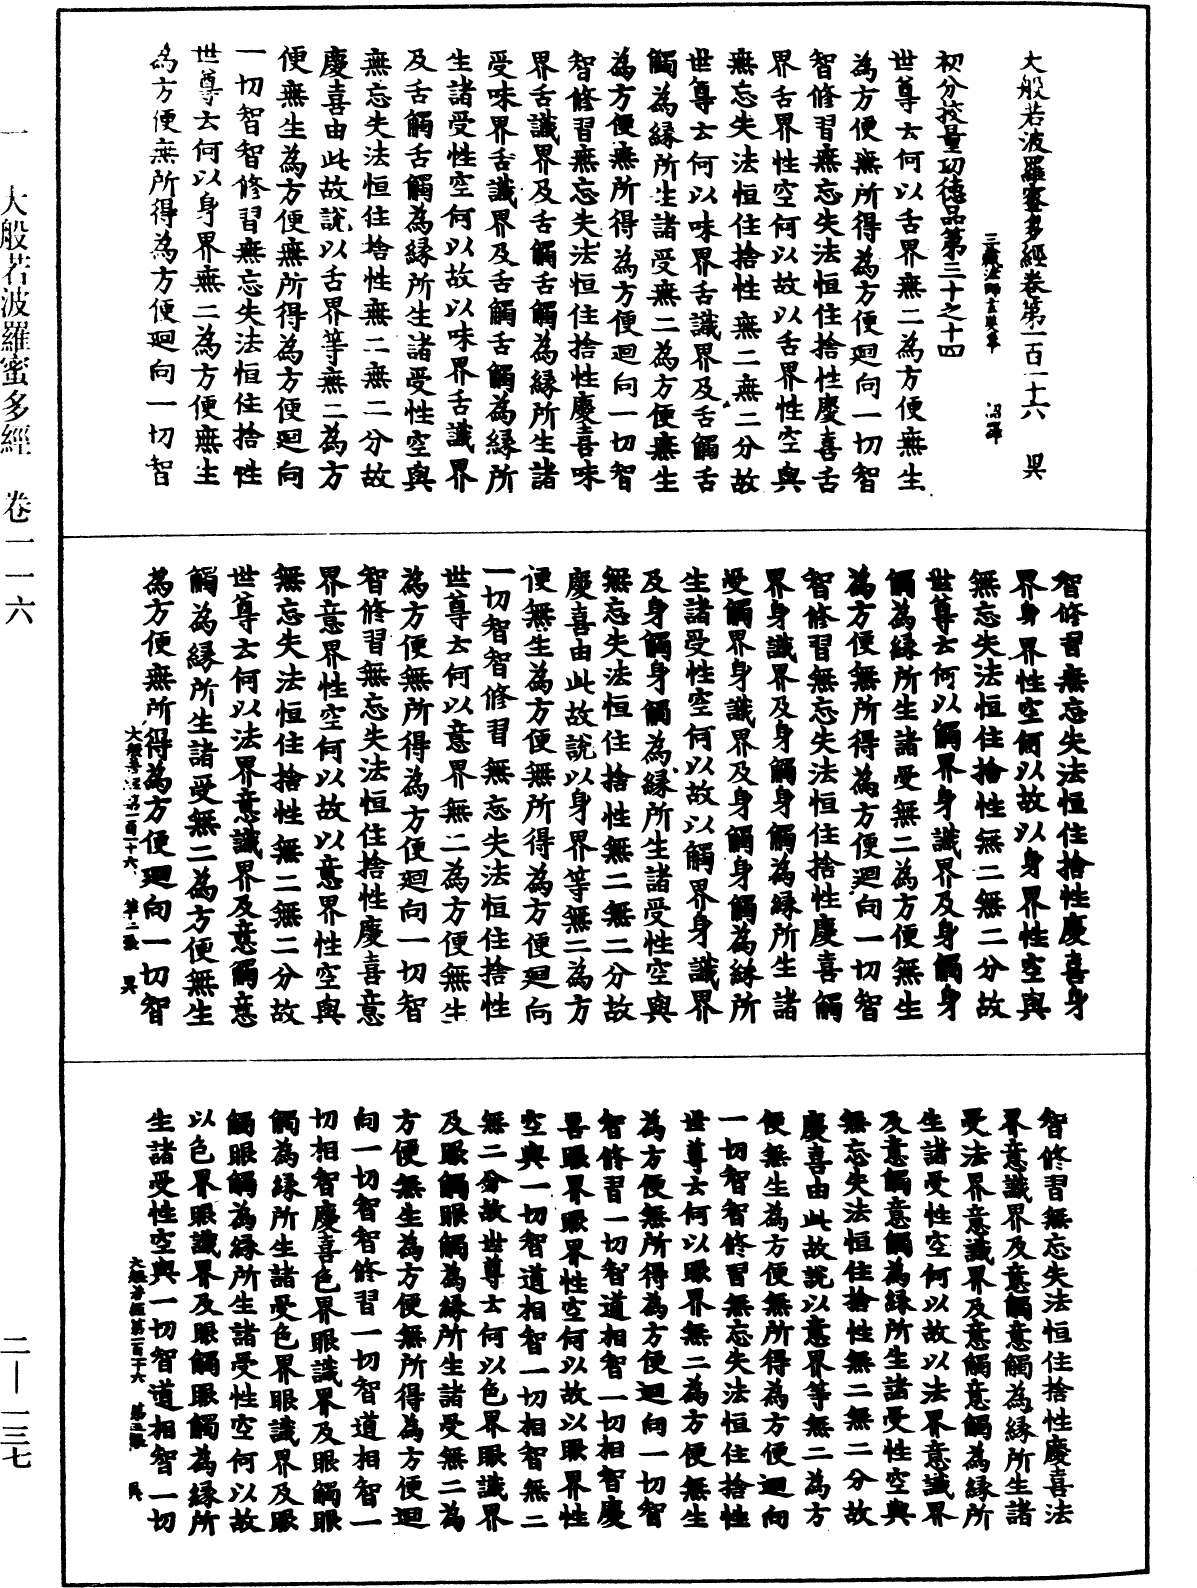 大般若波羅蜜多經卷第一百一十六　昃
三藏法師玄奘奉　詔譯
初分挍量功德品第三十之十四
世尊云何以舌界無二為方便無生
為方便無所得為方便迴向一切智
智修習無忘失法恒住捨性慶喜舌
界舌界性空何以故以舌界性空與
無忘失法恒住捨性無二無二分故
世尊云何以味界舌識界及舌觸舌
觸為緣所生諸受無二為方便無生
為方便無所得為方便迴向一切智
智修習無忘失法恒住捨性慶喜味
界舌識界及舌觸舌觸為緣所生諸
受味界舌識界及舌觸舌觸為緣所
生諸受性空何以故以味界舌識界
及舌觸舌觸為緣所生諸受性空與
無忘失法恒住捨性無二無二分故
慶喜由此故說以舌界等無二為方
便無生為方便無所得為方便迴向
一切智智修習無忘失法恒住捨性
世尊云何以身界無二為方便無生
為方便無所得為方便迴向一切智
智修習無忘失法恒住捨性慶喜身
界身界性空何以故以身界性空與
無忘失法恒住捨性無二無二分故
世尊云何以觸界身識界及身觸身
觸為緣所生諸受無二為方便無生
為方便無所得為方便迴向一切智
智修習無忘失法恒住捨性慶喜觸
界身識界及身觸身觸為緣所生諸
受觸界身識界及身觸身觸為緣所
生諸受性空何以故以觸界身識界
及身觸身觸為緣所生諸受性空與
無忘失法恒住捨性無二無二分故
慶喜由此故說以身界等無二為方
便無生為方便無所得為方便迴向
一切智智修習無忘失法恒住捨性
世尊云何以意界無二為方便無生
為方便無所得為方便迴向一切智
智修習無忘失法恒住捨性慶喜意
界意界性空何以故以意界性空與
無忘失法恒住捨性無二無二分故
世尊云何以法界意識界及意觸意
觸為緣所生諸受無二為方便無生
為方便無所得為方便迴向一切智
大般若經第一百一十六　第二張　昃
智修習無忘失法恒住捨性慶喜法
界意識界及意觸意觸為緣所生諸
受法界意識界及意觸意觸為緣所
生諸受性空何以故以法界意識界
及意觸意觸為緣所生諸受性空與
無忘失法恒住捨性無二無二分故
慶喜由此故說以意界等無二為方
便無生為方便無所得為方便迴向
一切智智修習無忘失法恒住捨性
世尊云何以眼界無二為方便無生
為方便無所得為方便迴向一切智
智修習一切智道相智一切相智慶
喜眼界眼界性空何以故以眼界性
空與一切智道相智一切相智無二
無二分故世尊云何以色界眼識界
及眼觸眼觸為緣所生諸受無二為
方便無生為方便無所得為方便迴
向一切智智修習一切智道相智一
切相智慶喜色界眼識界及眼觸眼
觸為緣所生諸受色界眼識界及眼
觸眼觸為緣所生諸受性空何以故
以色界眼識界及眼觸眼觸為緣所
生諸受性空與一切智道相智一切
大般若經第一百一十六　第三張　昃
一　大般若波羅蜜多經　卷一一六　二—一三七